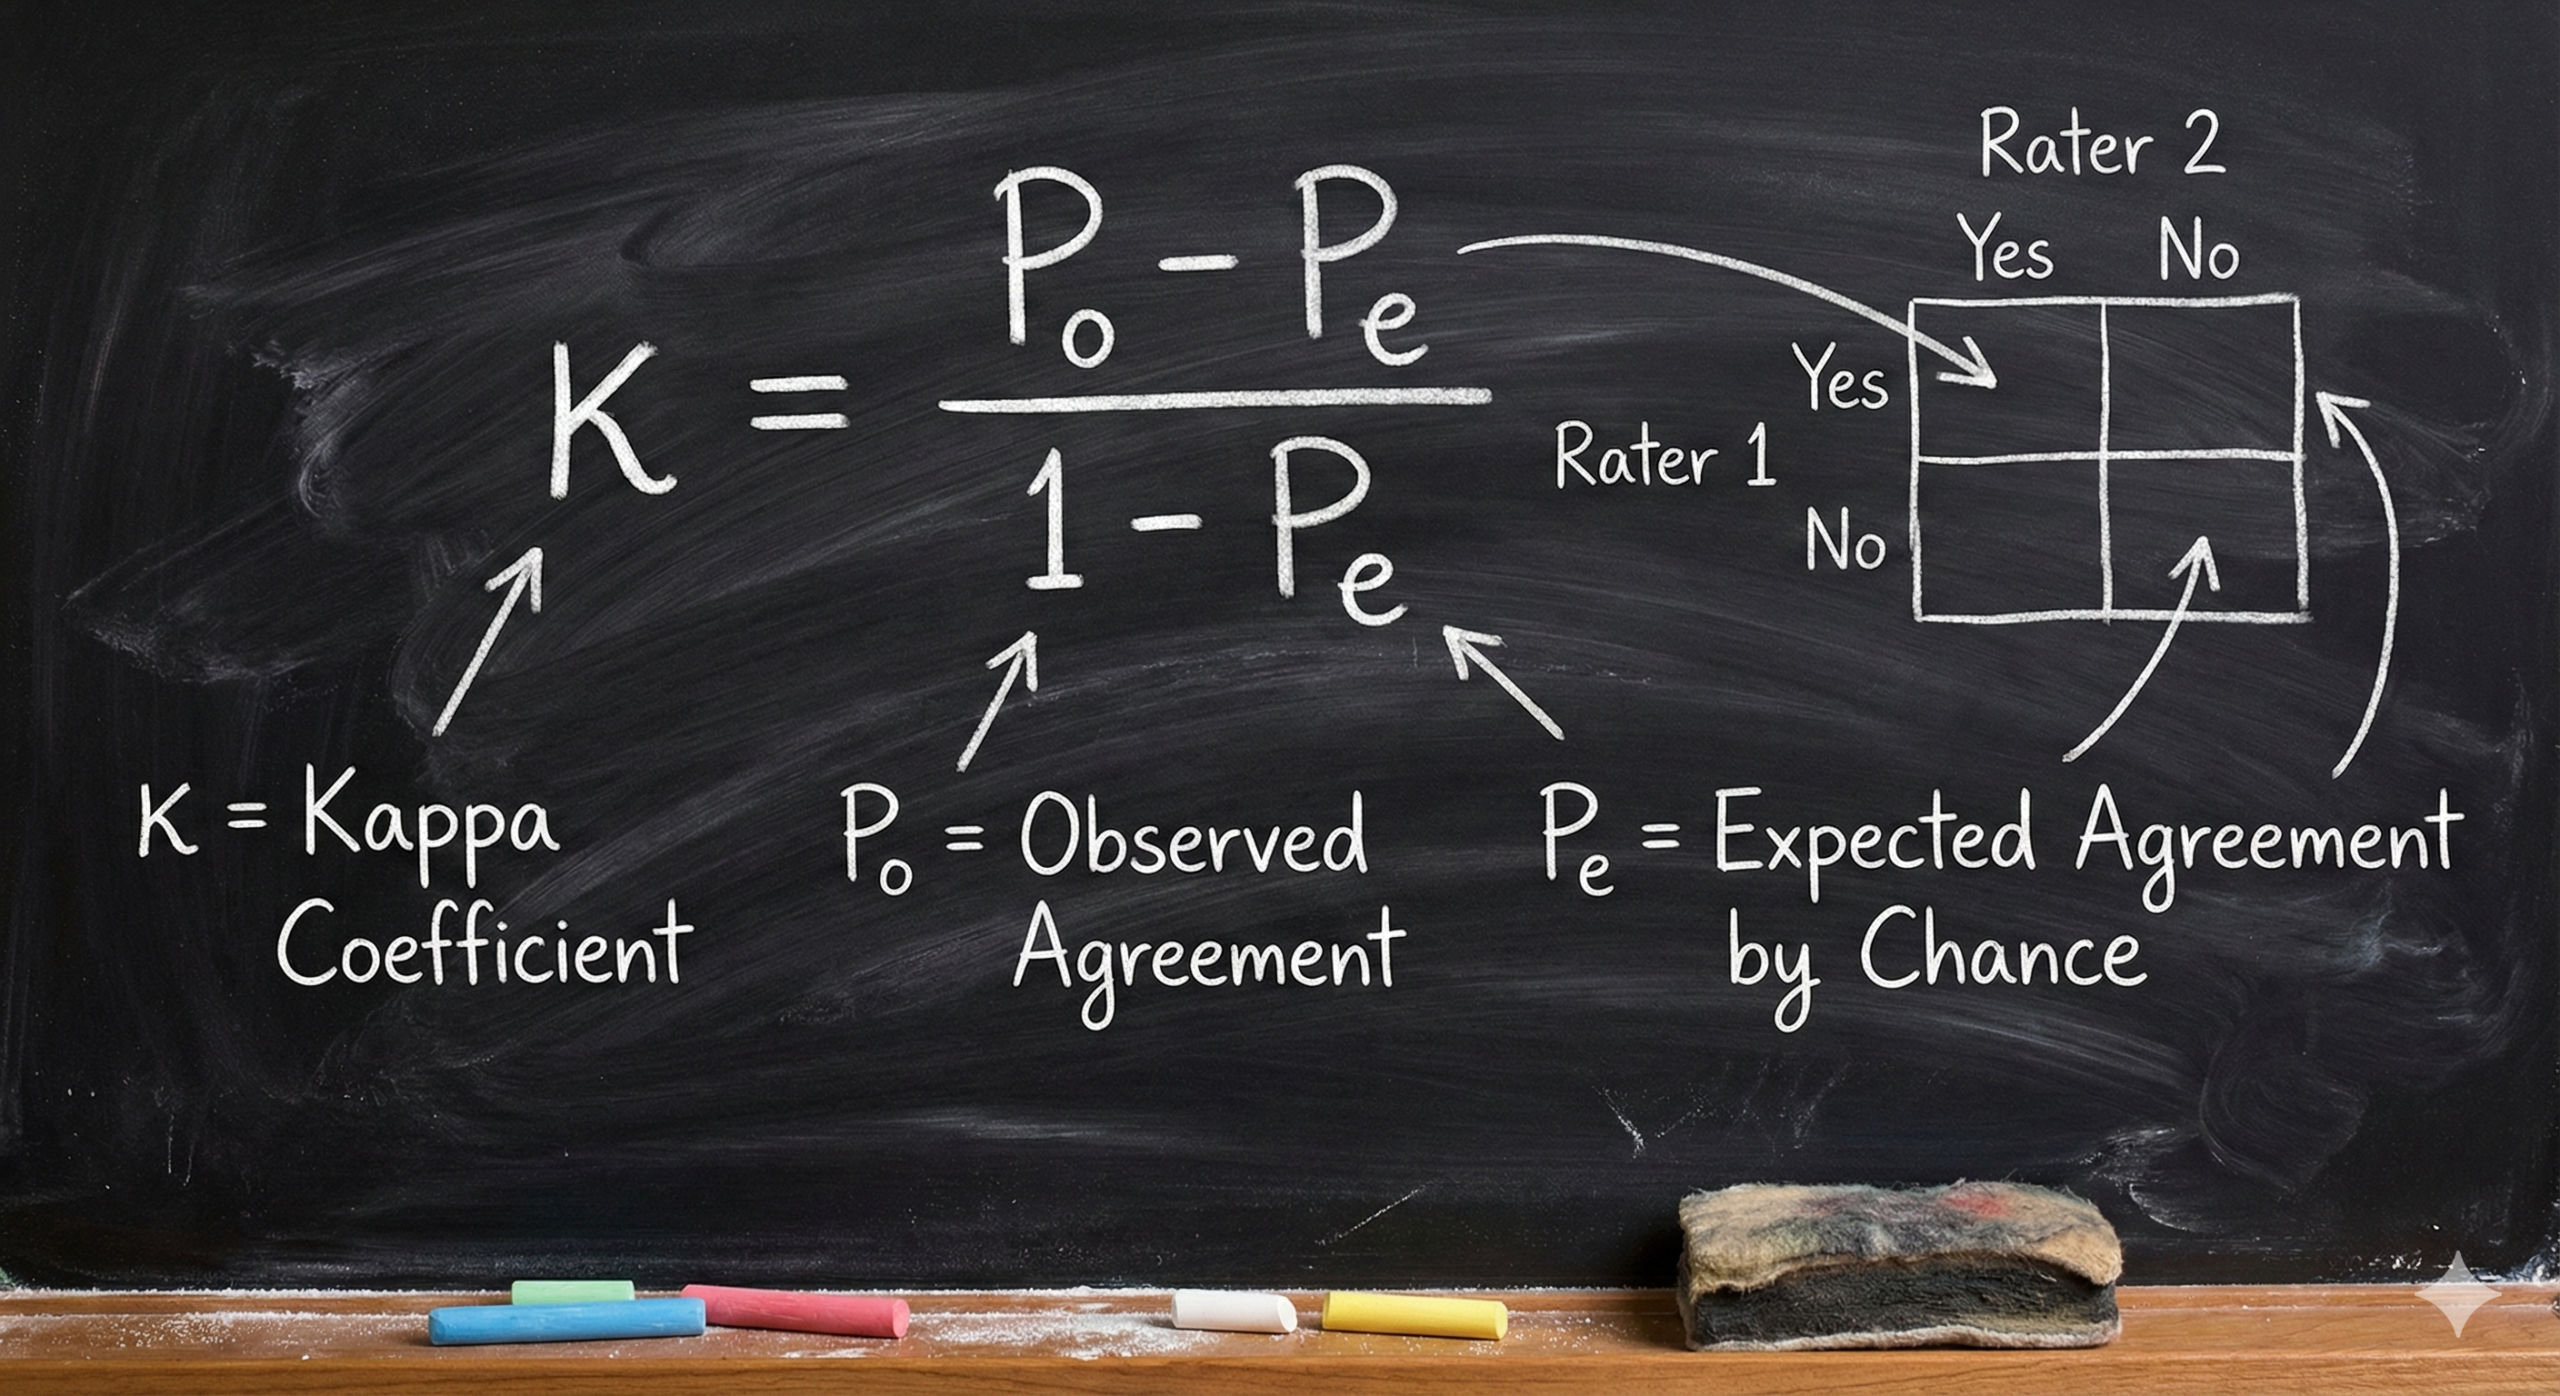 K = Po - Pe
1 - Pe
Rater 2
Yes No
Yes
Rater 1
No
K = Kappa
Coefficient
Po = Observed
Agreement
Pe = Expected Agreement
by Chance